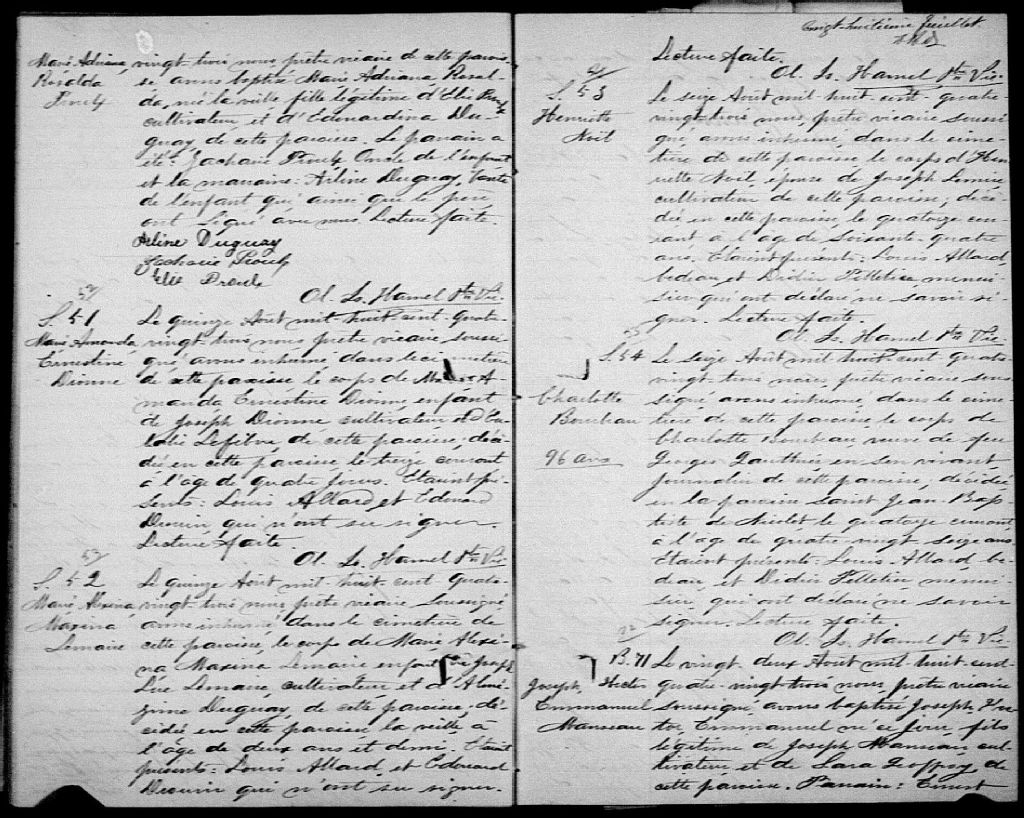 Marie Adriana
Rosalda
Proulx
vingt-trois nous prêtre vicaire de cette parois-
se avons baptisé Marie Adriana Rosal-
da, née la veille fille légitime d'Elie Proulx
cultivateur et d'Edouardina Du-
guay de cette paroisse. Le parrain a
été: Zacharie Proulx Oncle de l'enfant
et la marraine: Arline Duguay, Tante
de l'enfant qui ainsi que le père
ont signé avec nous. Lecture faite.
Arline Duguay
Zacharie Proulx
Elie Proulx
Ol. Ls. Hamel Ptre Vic.
52
S 51
Marie Amanda
Ernestine
Dionne
Le quinze Août mil-huit-cent-quatre-
vingt-trois nous prêtre vicaire soussi-
gné avons inhumé dans le cimetière
de cette paroisse le corps de Marie A-
manda Ernestine Dionne enfant
de Joseph Dionne cultivateur et d'Eu-
lalie Lefebvre de cette paroisse, décé-
dée en cette paroisse le treize courant
à l'age de quatre jours. Etaient pré-
sents: Louis Allard et Edouard
Drouin, qui n'ont su signer.
Lecture faite.
Ol. Ls. Hamel Ptre Vic.
53
S 52
Marie Alexina
Maxina
Lemaire
Le quinze Août mil-huit-cent-quatre-
vingt-trois nous, prêtre vicaire soussigné
avons inhumé dans le cimetière de
cette paroisse, le corps de Marie Alexi-
na Maxina Lemaire enfant de Joseph
Luc Lemaire, cultivateur et d'
Duguay, de cette paroisse, dé-
cédée en cette paroisse la veille à
l'age de deux ans et demi. Etaient
présents: Louis Allard, et Edouard
Drouin qui n'ont su signer.
vingt-huitième feuillet
Lecture faite.
Ol. Ls. Hamel Ptre Vic.
S 53
Henriette
Noil
Le seize Août mil-huit-cent-quatre-
vingt-trois nous, prêtre vicaire soussi-
gné avons inhumé, dans le cime-
tière de cette paroisse le corps d'Hen-
riette Noil, épouse de Joseph Lemire
cultivateur de cette paroisse, décé-
dée en cette paroisse, le quatorze cou-
rant à l'age de soixante-quatre
ans. Etaient présents: Louis Allard,
bedeau, et Didier Pelletier, menui-
sier qui ont déclaré ne savoir si-
gner. Lecture faite.
Ol. Ls. Hamel Ptre Vic.
55
S. 54
Charlotte
Bourbeau
96 ans
Le seize Août mil huit-cent-quatre-
vingt-trois nous, prêtre vicaire sous-
signé avons inhumé dans le cime-
tière de cette paroisse le corps de
Charlotte Bourbeau veuve de feu
Georges Gauthier, en son vivant,
journalier de cette paroisse, décédée
en la paroisse Saint Jean-Bap-
tiste de Nicolet le quatorze courant,
à l'age de quatre-vingt-seize ans.
Etaient présents: Louis Allard be-
deau, et Didier Pelletier menui-
sier, qui ont déclaré ne savoir
signer. Lecture faite.
Ol. Ls. Hamel Ptre Vic.
72
B. 71
Joseph Hector
Emmanuel
Manseau
Le vingt-deux Août mil-huit-cent-
quatre-vingt-trois nous, prêtre vicaire
soussigné, avons baptisé Joseph, Hec-
tor, Emmanuel né ce jour, fils
légitime de Joseph Manseau cul-
tivateur, et de Lara Joffroy de
cette paroisse. Parrain: Ernest